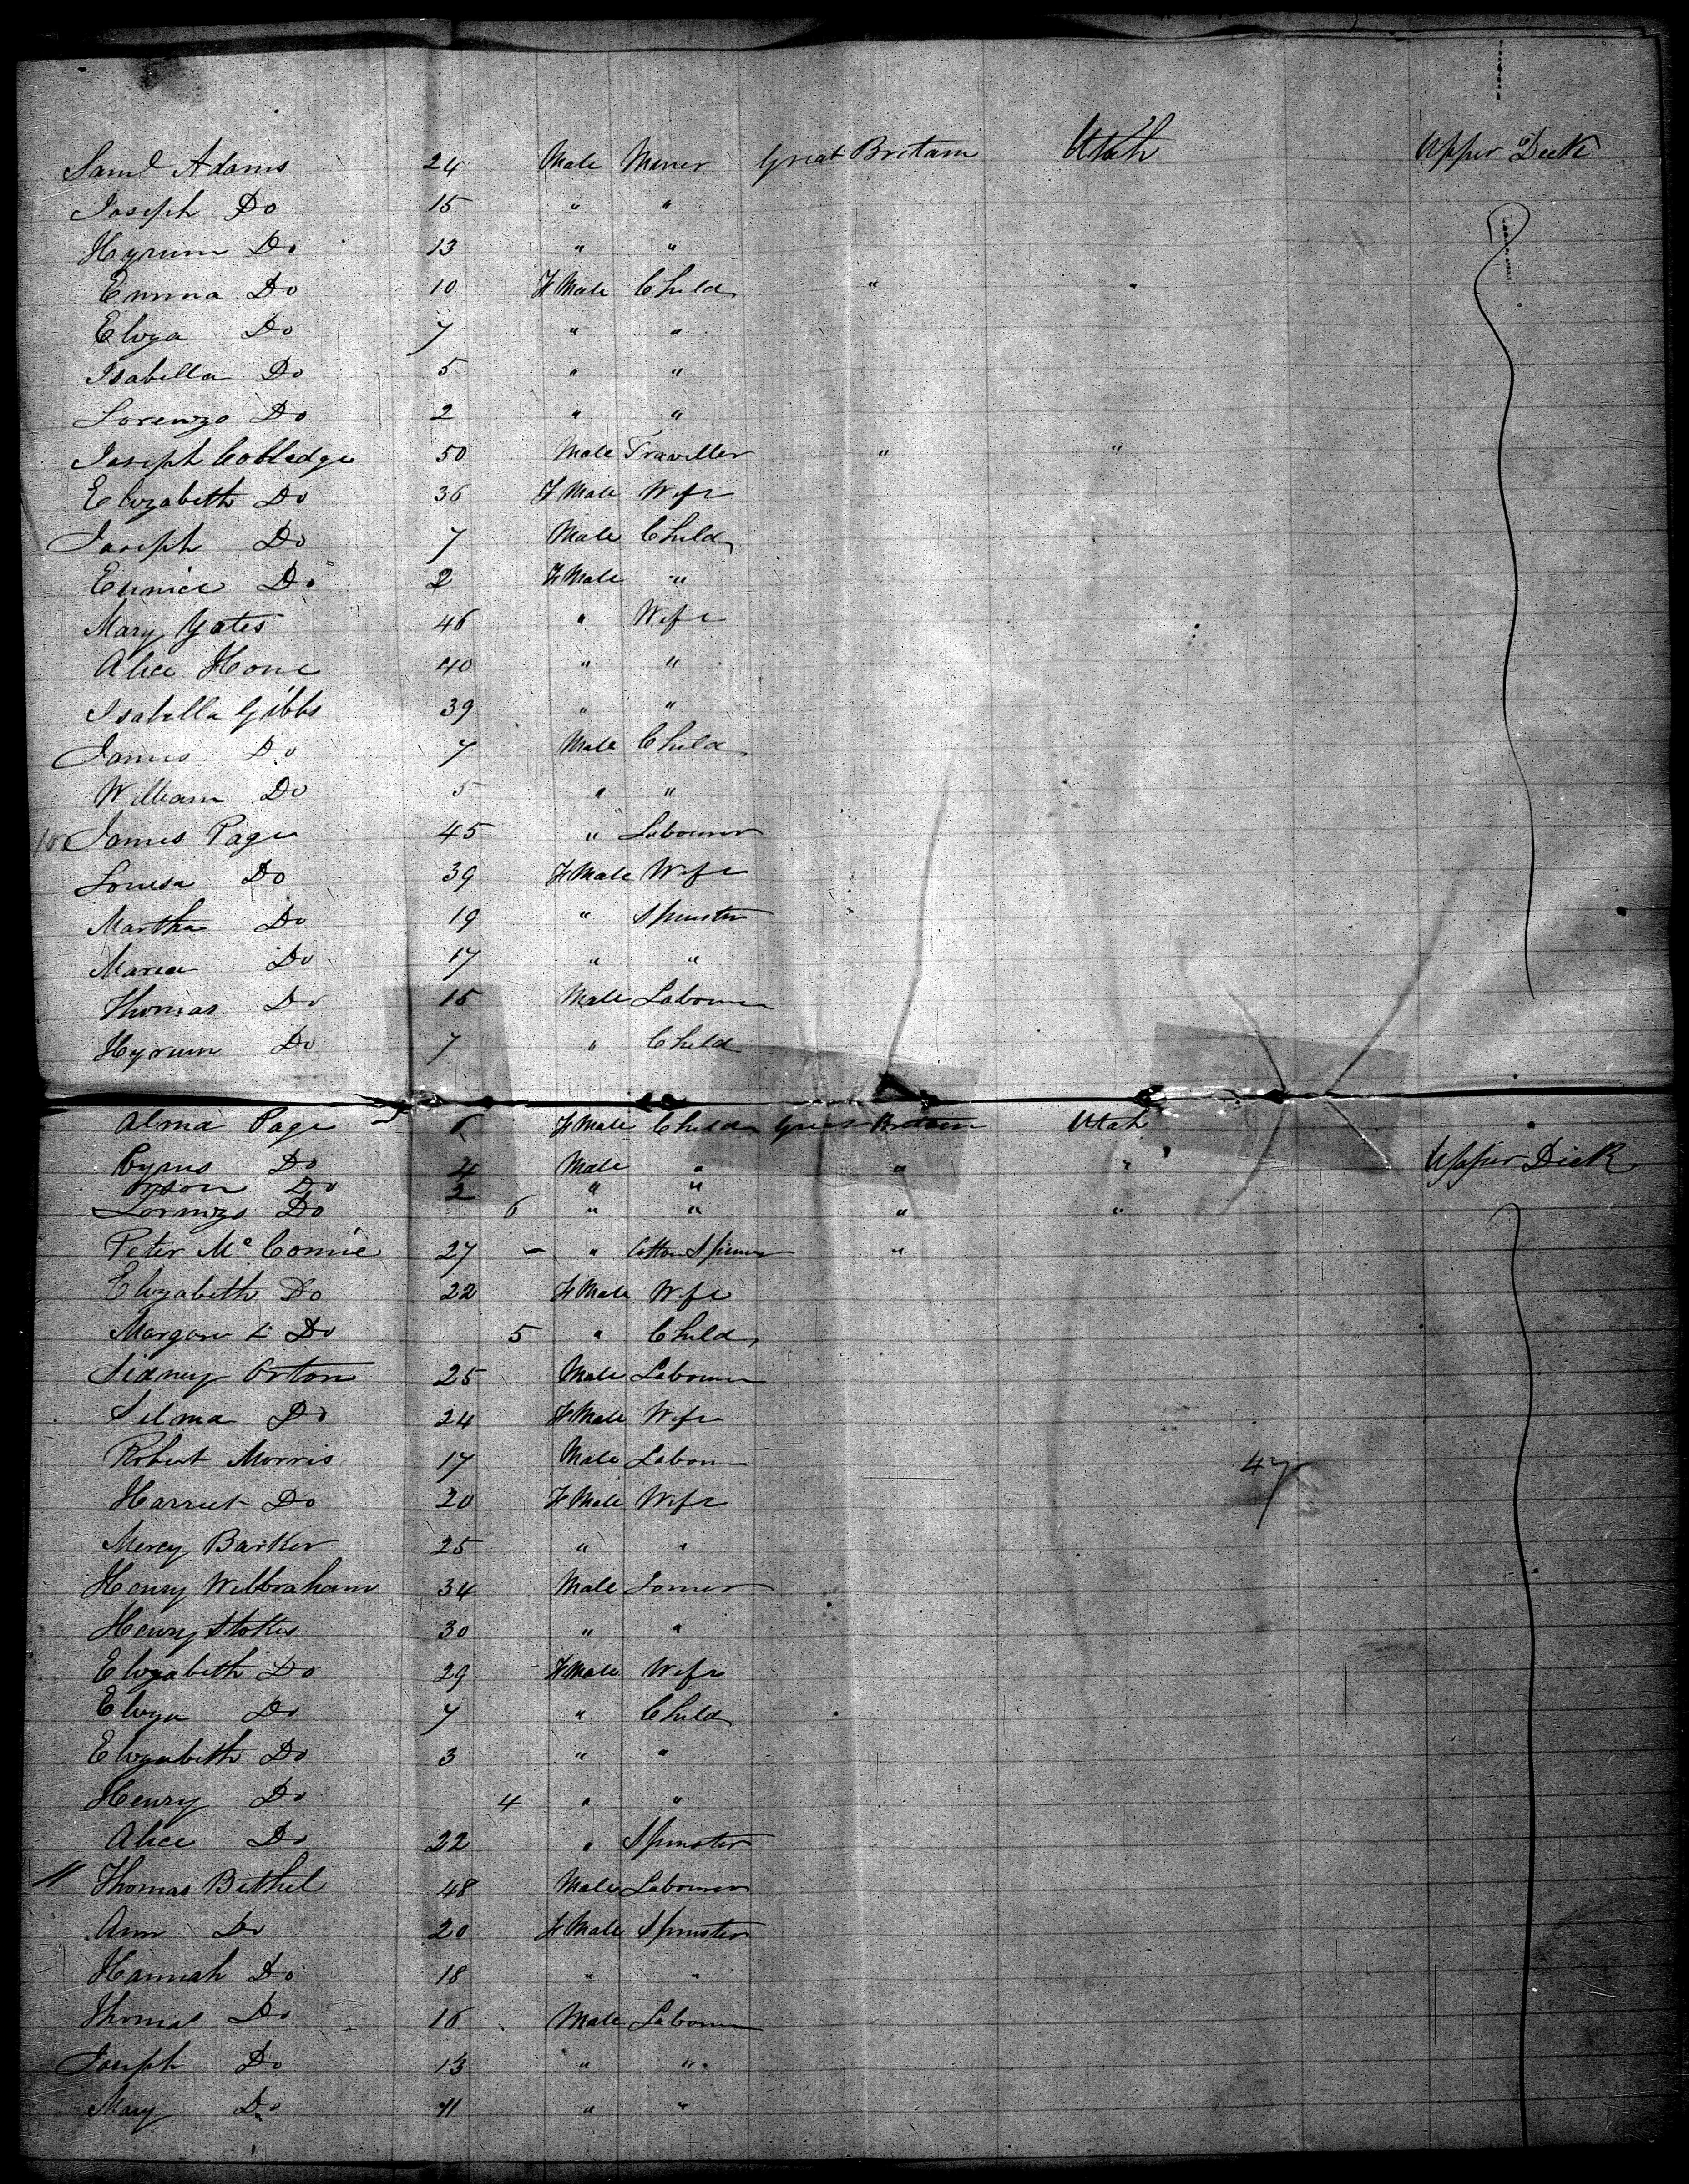 Saml Adams 24 Male Miner Great Britain Utah Upper Deck
Joseph Do 15 " "
Hyrum Do 13 " "
Emma Do 10 F Male Child " "
Eliza Do 7 " "
Isabella Do 5 " "
Lorenzo Do 2 " "
Joseph Cobledge 50 Male Traveller " "
Elizabeth Do 36 F Male Wife
Joseph Do 7 Male Child
Eunice Do 2 F Male "
Mary Yates 46 " Wife
Alice Hone 40 " "
Isabella Gibbs 39 " "
James Do 7 Male Child
William Do 5 " "
James Page 45 " Labourer
Louisa Do 39 F Male Wife
Martha Do 19 " Spinster
Maria Do 17 " "
Thomas Do 15 Male Labourer
Hyrum Do 7 " Child
Alma Page 6 F Male Child Great Britain Utah
Cyrus Do 4 Male " " " Upper Deck
Orson Do 2 " "
Lorenzo Do 6 " " " "
Peter Mc Comie 27 - " Cotton Spinner "
Elizabeth Do 22 F Male Wife
Margaret Do 5 " Child
Sidney Orton 25 Male Labourer
Selma Do 24 F Male Wife
Robert Morris 17 Male Labour 47
Harriet Do 20 F Male Wife
Mercy Barker 25 " "
Henry Wilbraham 34 Male Joiner
Henry Stokes 30 " "
Elizabeth Do 29 F Male Wife
Eliza Do 7 " Child
Elizabeth Do 3 " "
Henry Do 4 " "
Alice Do 22 " Spinster
11 Thomas Bethel 48 Male Labourer
Ann Do 20 F Male Spinster
Hannah Do 18 " "
Thomas Do 16 Male Labourer
Joseph Do 13 " "
Mary Do 11 " "